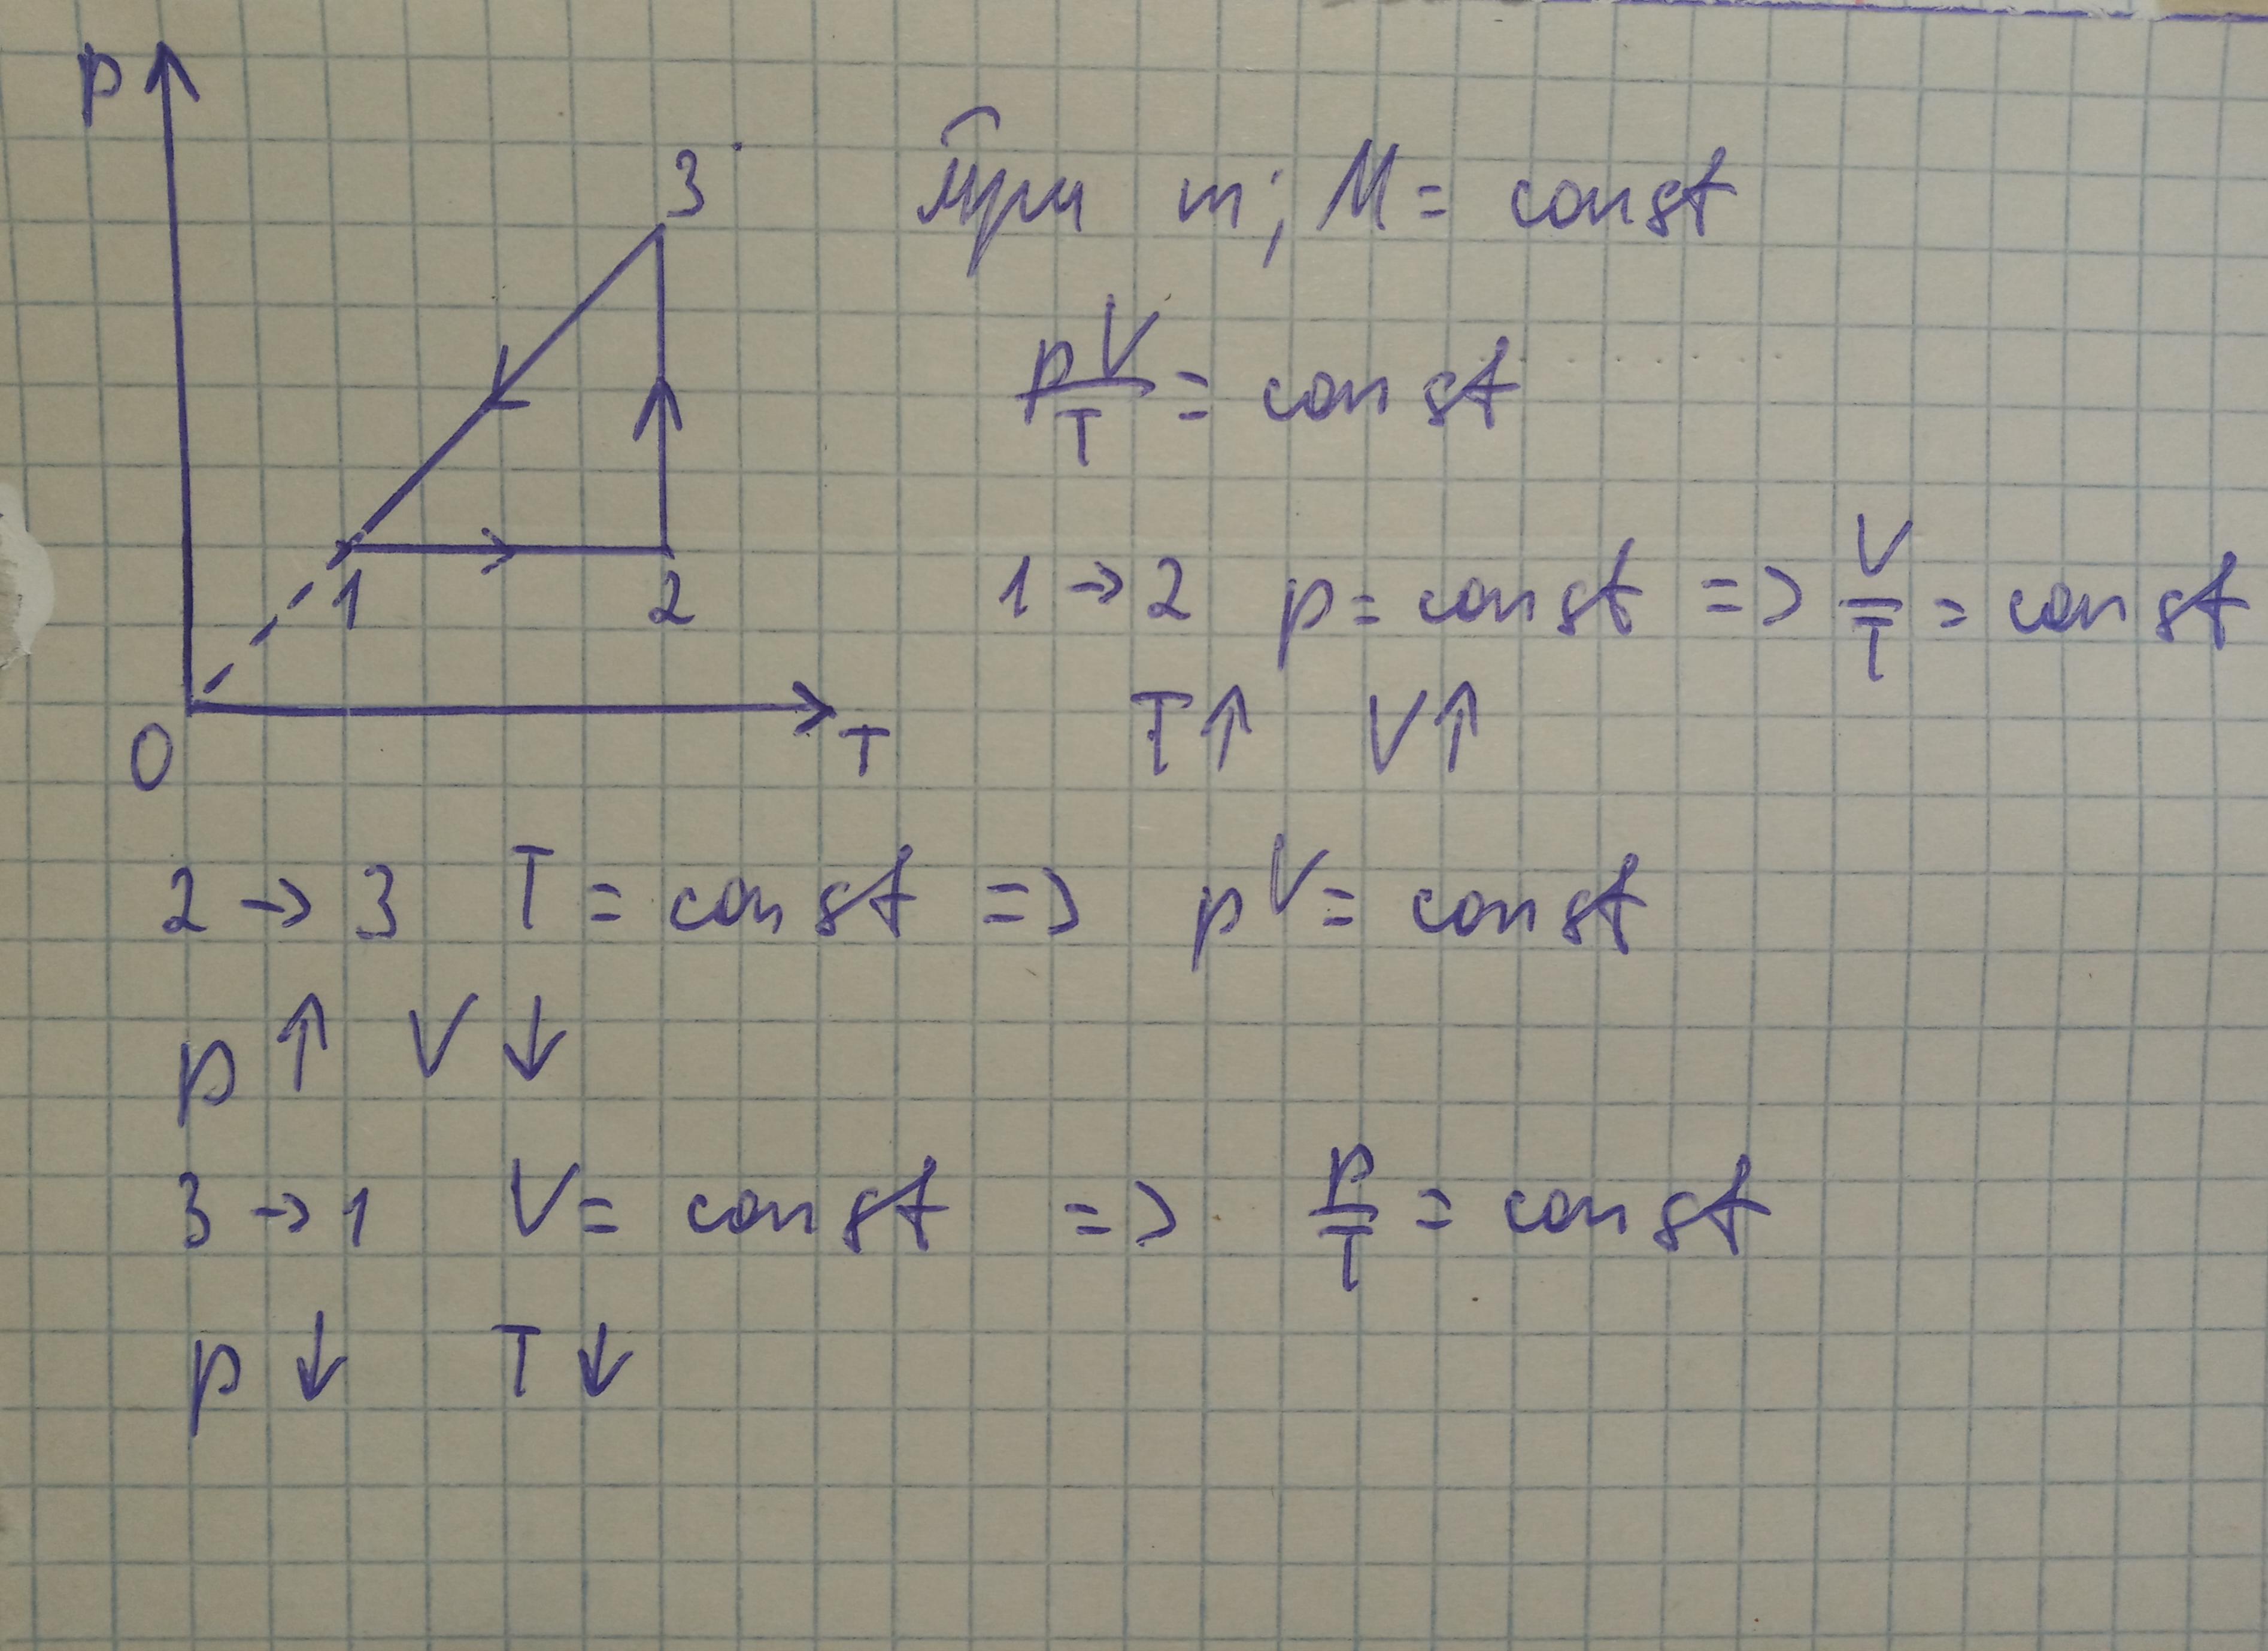 p
3
При m; M = const
pV/T = const
1 2
1 → 2 p = const => V/T = const
0 T
T↑ V↑
2 → 3 T = const => pV = const
p↑ V↓
3 → 1 V = const => p/T = const
p↓ T↓